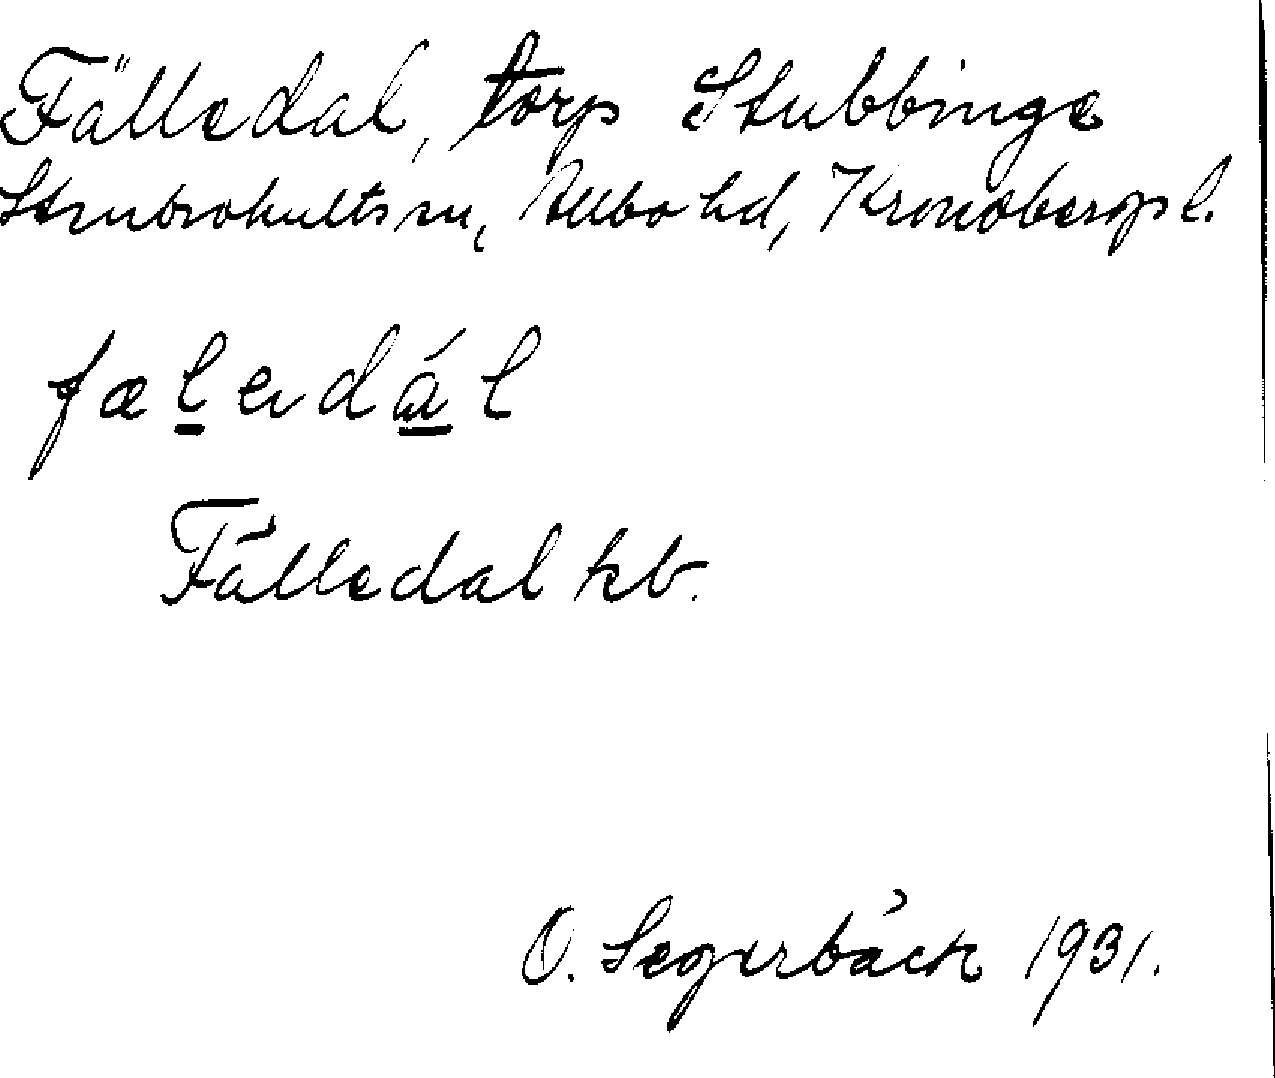 Fälledal, torp Stubbinge
Stenbrohults sn, Allbo hd, Kronobergs l.
fæledál
Fälledal kb.
O. Segerbäck 1931.